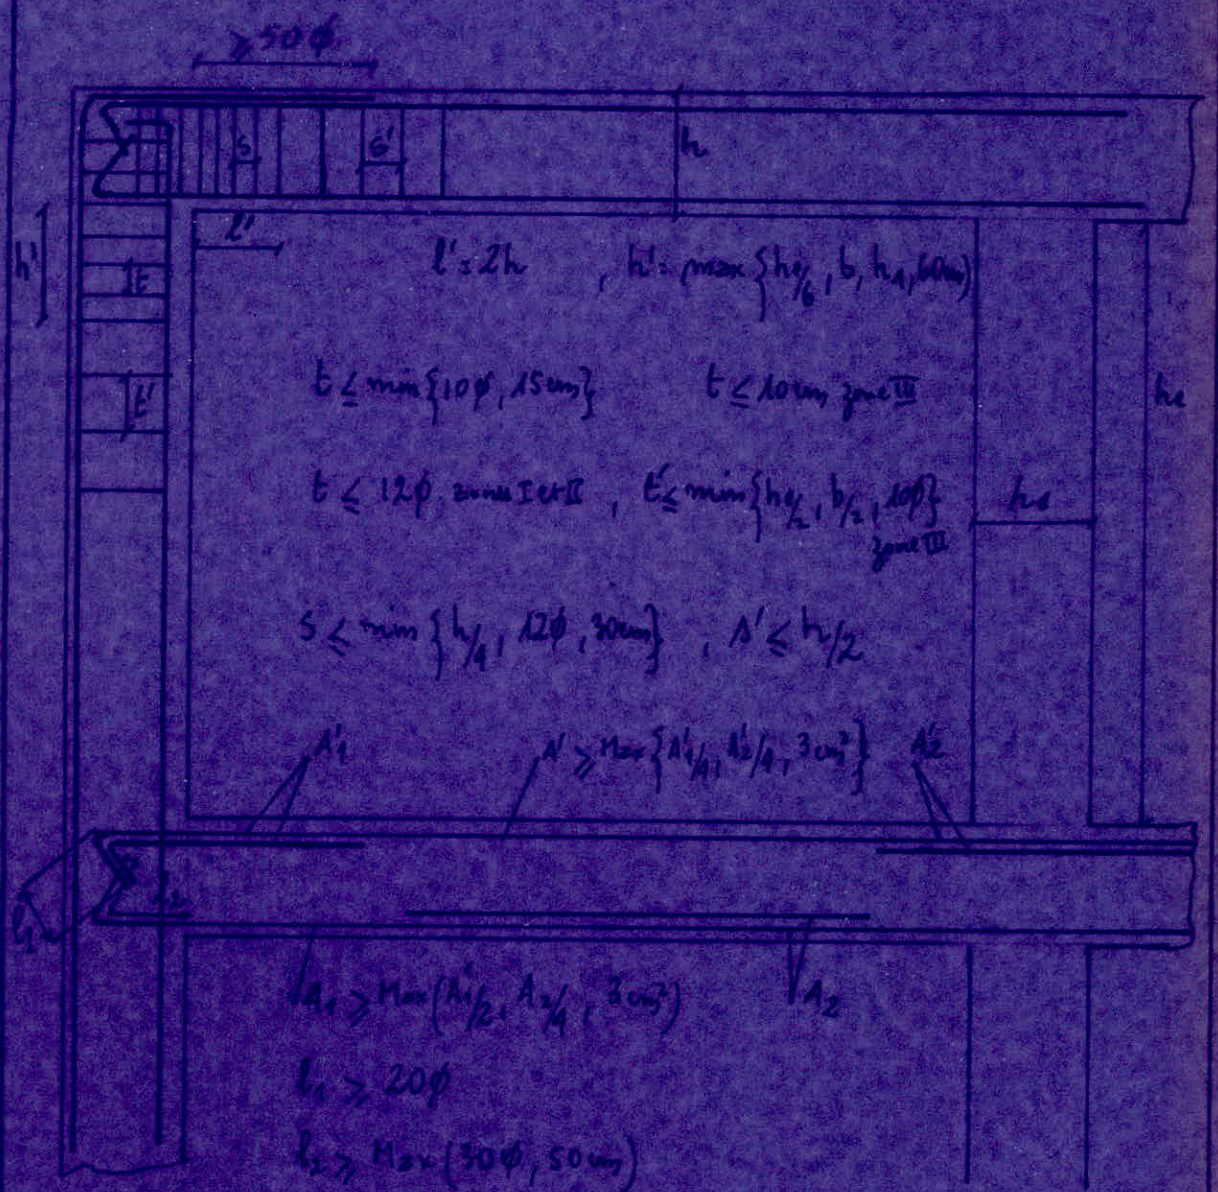 ≥50ϕ
s s' h
l'
h' l'=2h , h'= max {he/6, b, h1, 60cm}
t
t ≤ min{10ϕ, 15cm} t ≤ 10cm zone III
t' he
t' ≤ 12ϕ zones I et II , t' ≤ min{h1/2, b/2, 10ϕ}
zone III
h1
s ≤ min {h/4, 12ϕ, 30cm} , s' ≤ h/2
A'1 A' ≥ Max {A'1/4, A'2/4, 3cm²} A'2
l1 l2
A1 ≥ Max(A'1/2, A2/4, 3cm²) A2
l1 ≥ 20ϕ
l2 ≥ Max(30ϕ, 50cm)